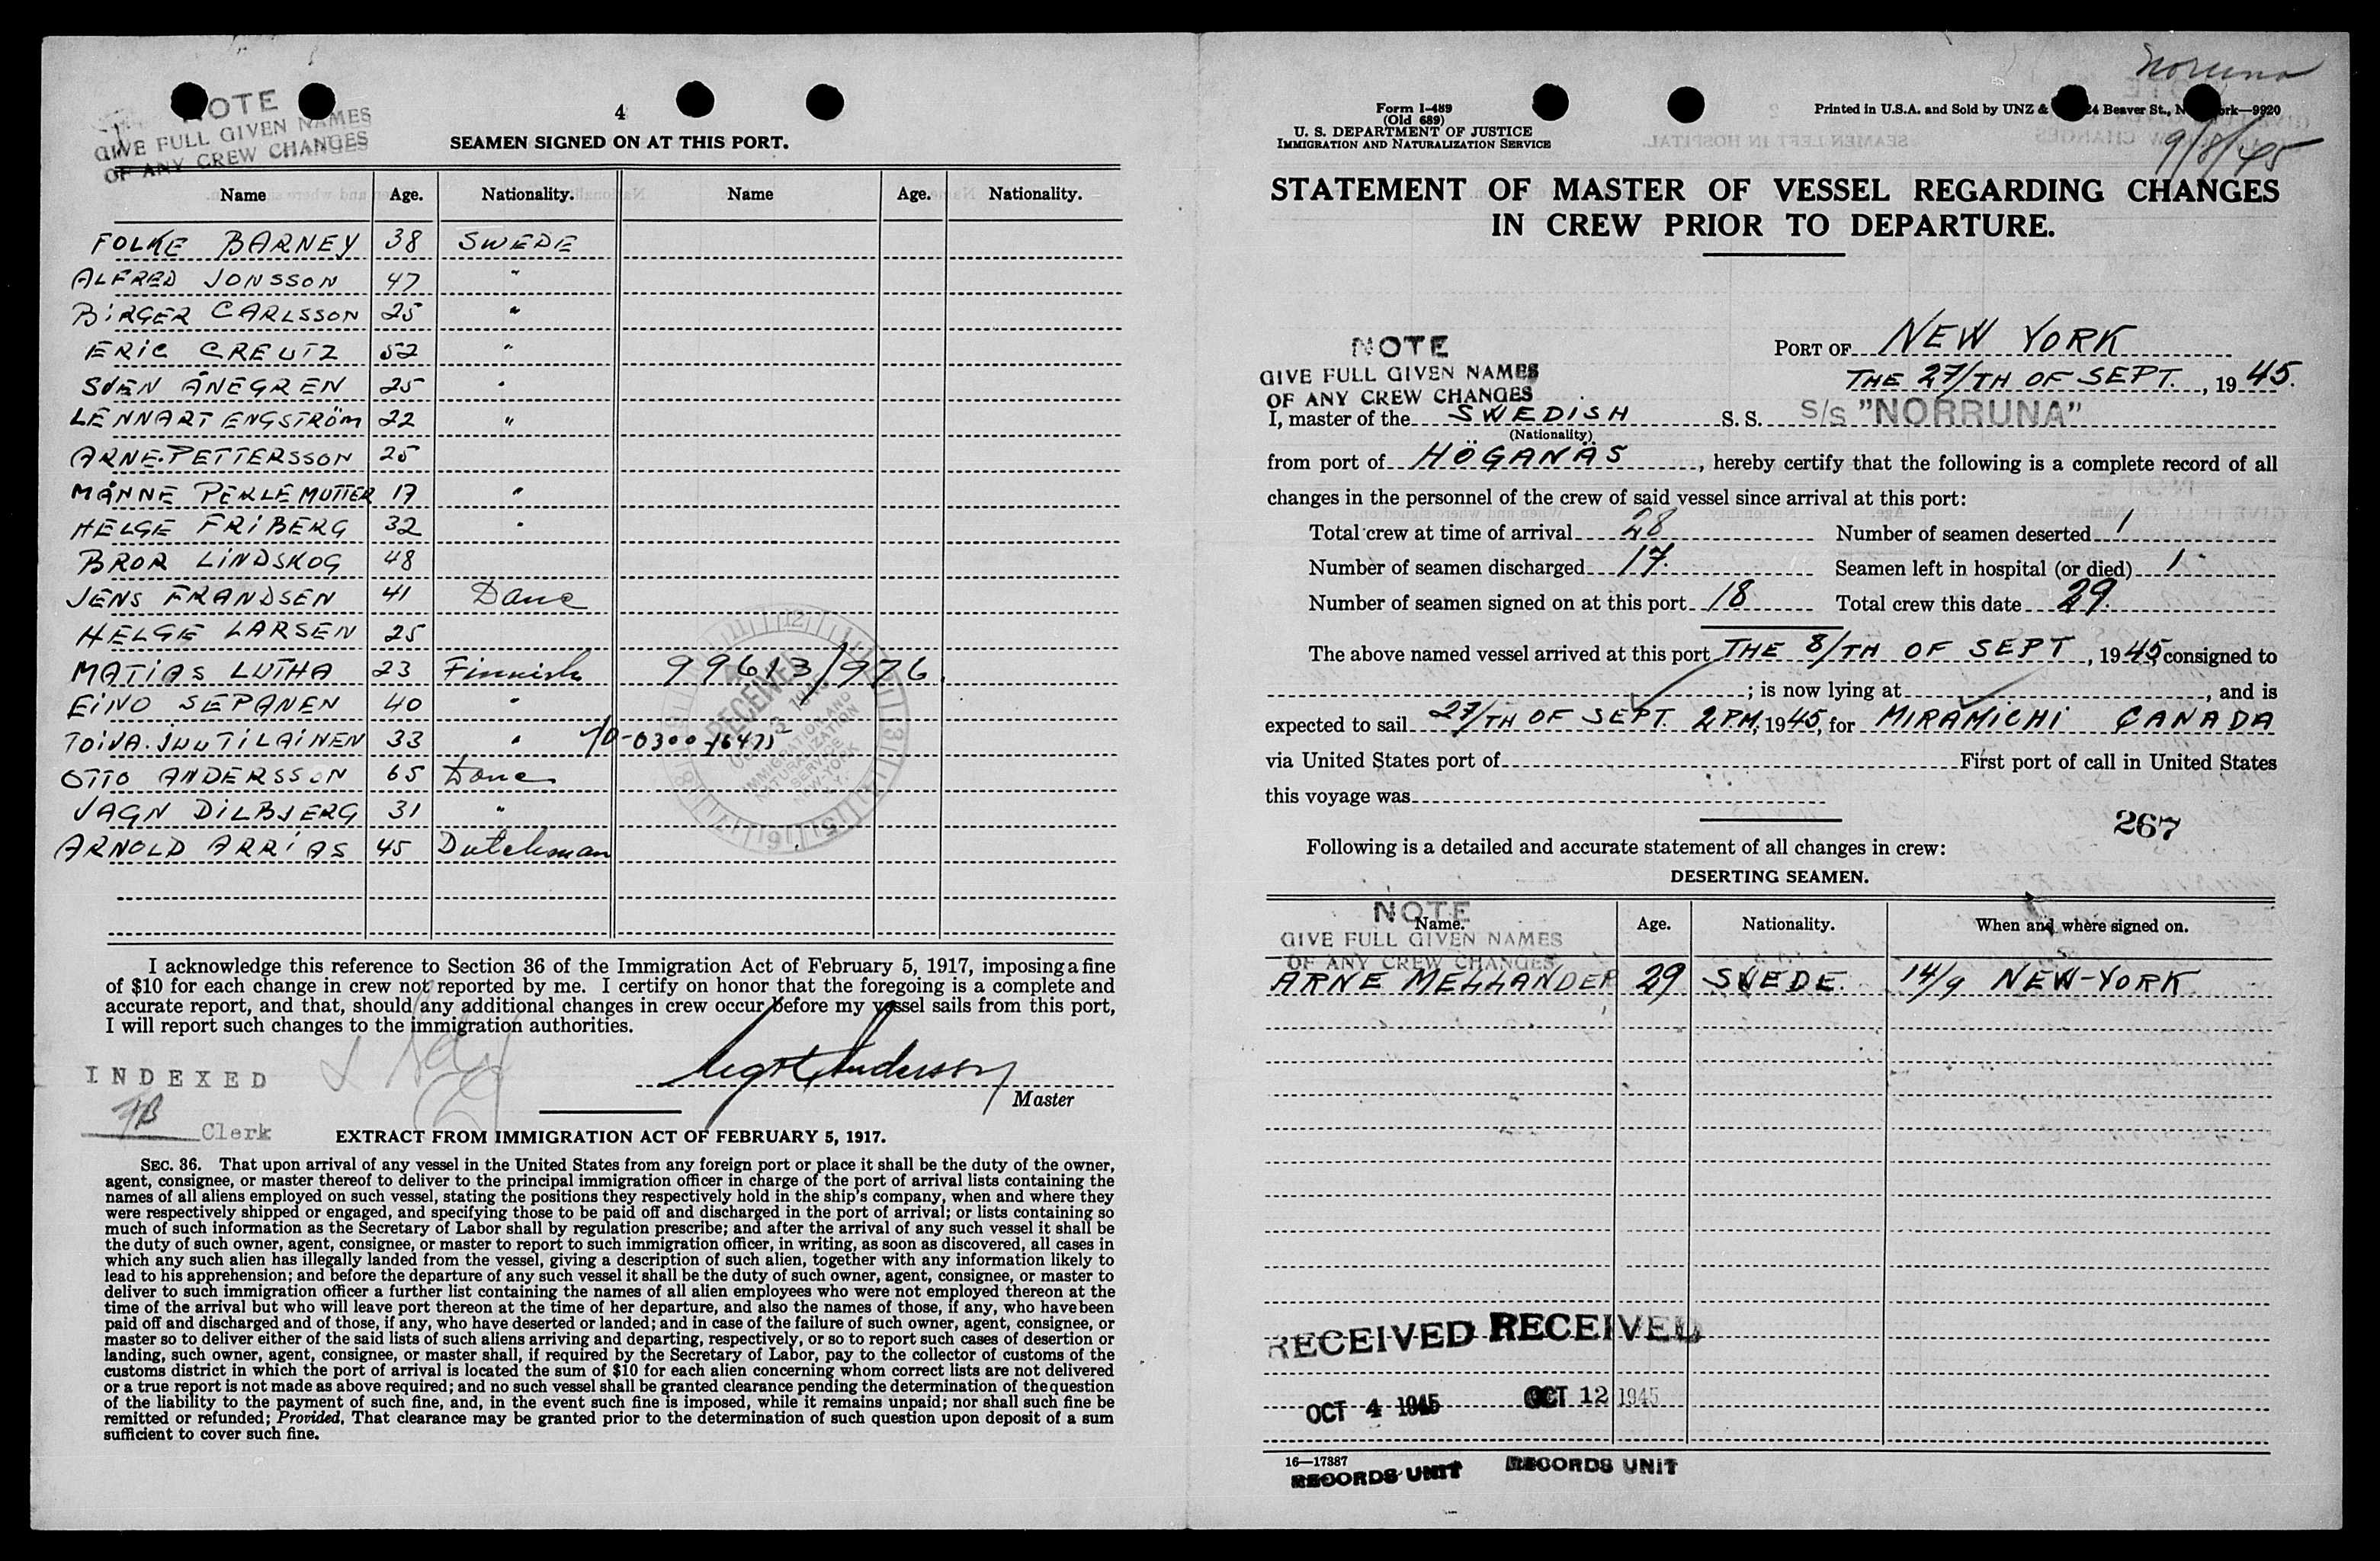 NOTE
GIVE FULL GIVEN NAMES
OF ANY CREW CHANGES
4
SEAMEN SIGNED ON AT THIS PORT.
Name Age. Nationality. Name Age. Nationality.
FOLKE BARNEY 38 SWEDE
ALFRED JONSSON 47 "
BIRGER CARLSSON 25 "
ERIC CREUTZ 52 "
SVEN ÅNEGREN 25 "
LENNART ENGSTRÖM 22 "
ARNE PETTERSSON 25
MÅNNE PERLEMUTTER 17 "
HELGE FRIBERG 32 "
BROR LINDSKOG 48
JENS FRANDSEN 41 Dane
HELGE LARSEN 25
MATIAS LUTHA 23 Finnish 99613/976
EINO SEPANEN 40 "
TOIVA. JUUTILAINEN 33 " 70-0300-16475
OTTO ANDERSSON 65 Dane
JAGN DILBJERG 31 "
ARNOLD ARRIAS 45 Dutchman
RECEIVED
IMMIGRATION AND
NATURALIZATION
SERVICE
NEW-YORK
N.Y.
I acknowledge this reference to Section 36 of the Immigration Act of February 5, 1917, imposing a fine
of $10 for each change in crew not reported by me. I certify on honor that the foregoing is a complete and
accurate report, and that, should any additional changes in crew occur before my vessel sails from this port,
I will report such changes to the immigration authorities.
INDEXED
Master
Clerk
EXTRACT FROM IMMIGRATION ACT OF FEBRUARY 5, 1917.
SEC. 36. That upon arrival of any vessel in the United States from any foreign port or place it shall be the duty of the owner,
agent, consignee, or master thereof to deliver to the principal immigration officer in charge of the port of arrival lists containing the
names of all aliens employed on such vessel, stating the positions they respectively hold in the ship's company, when and where they
were respectively shipped or engaged, and specifying those to be paid off and discharged in the port of arrival; or lists containing so
much of such information as the Secretary of Labor shall by regulation prescribe; and after the arrival of any such vessel it shall be
the duty of such owner, agent, consignee, or master to report to such immigration officer, in writing, as soon as discovered, all cases in
which any such alien has illegally landed from the vessel, giving a description of such alien, together with any information likely to
lead to his apprehension; and before the departure of any such vessel it shall be the duty of such owner, agent, consignee, or master to
deliver to such immigration officer a further list containing the names of all alien employees who were not employed thereon at the
time of the arrival but who will leave port thereon at the time of her departure, and also the names of those, if any, who have been
paid off and discharged and of those, if any, who have deserted or landed; and in case of the failure of such owner, agent, consignee, or
master so to deliver either of the said lists of such aliens arriving and departing, respectively, or so to report such cases of desertion or
landing, such owner, agent, consignee, or master shall, if required by the Secretary of Labor, pay to the collector of customs of the
customs district in which the port of arrival is located the sum of $10 for each alien concerning whom correct lists are not delivered
or a true report is not made as above required; and no such vessel shall be granted clearance pending the determination of the question
of the liability to the payment of such fine, and, in the event such fine is imposed, while it remains unpaid; nor shall such fine be
remitted or refunded; Provided, That clearance may be granted prior to the determination of such question upon deposit of a sum
sufficient to cover such fine.
Norruna
9/8/45
Form I-489
(Old 689)
U. S. DEPARTMENT OF JUSTICE
IMMIGRATION AND NATURALIZATION SERVICE
Printed in U.S.A. and Sold by UNZ & Beaver St., 9920
STATEMENT OF MASTER OF VESSEL REGARDING CHANGES
IN CREW PRIOR TO DEPARTURE.
NOTE
GIVE FULL GIVEN NAMES
OF ANY CREW CHANGES
PORT OF NEW YORK
THE 27/TH OF SEPT., 1945.
I, master of the SWEDISH S. S. S/S "NORRUNA"
(Nationality)
from port of HÖGANÄS, hereby certify that the following is a complete record of all
changes in the personnel of the crew of said vessel since arrival at this port:
Total crew at time of arrival 28 Number of seamen deserted 1
Number of seamen discharged 17. Seamen left in hospital (or died) 1
Number of seamen signed on at this port 18 Total crew this date 29.
The above named vessel arrived at this port THE 8/TH OF SEPT, 1945 consigned to
; is now lying at , and is
expected to sail 27/TH OF SEPT. 2 P.M, 1945, for MIRAMICHI CANADA
via United States port of First port of call in United States
this voyage was
267
Following is a detailed and accurate statement of all changes in crew:
DESERTING SEAMEN.
NOTE
GIVE FULL GIVEN NAMES
OF ANY CREW CHANGES
Name. Age. Nationality. When and where signed on.
ARNE MELLANDER 29 SWEDE. 14/9 NEW-YORK
RECEIVED RECEIVED
OCT 4 1945 OCT 12 1945
16—17387
RECORDS UNIT RECORDS UNIT